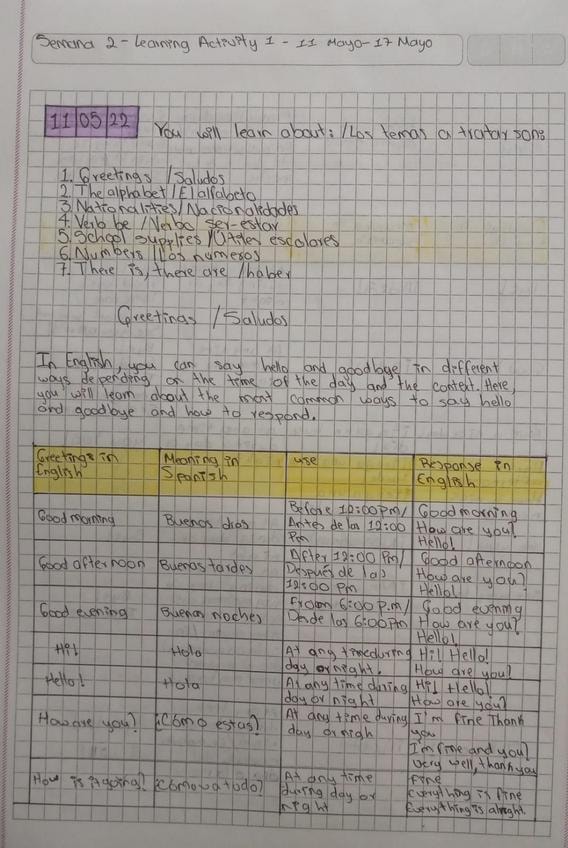 Semana 2 - Learning Activity 1 - 11 Mayo - 17 Mayo
11 05 22
You will learn about: / Los temas a tratar son:
1. Greetings / Saludos
2. The alphabet / El alfabeto
3. Nationalities / Nacionalidades
4. Verb be / Verbo ser-estar
5. School supplies / Útiles escolares
6. Numbers / Los numeros
7. There is, there are / haber
Greetings / Saludos
In English, you can say hello and goodbye in different
ways depending on the time of the day and the context. Here,
you will learn about the most common ways to say hello
and goodbye and how to respond.
Greetings in English
Meaning in Spanish
use
Response in English
Good morning
Buenos dias
Before 12:00pm/
Antes de las 12:00
Pm
Good morning
How are you?
Hello!
Good afternoon
Buenas tardes
After 12:00 Pm/
Después de las
12:00 pm
Good afternoon
How are you?
Hello!
Good evening
Buenas noches
From 6:00 p.m/
Desde las 6:00pm
Good evening
How are you?
Hello!
Hi!
Hola
At any time during
day or night.
Hi! Hello!
How are you?
Hello!
Hola
At any time during
day or night
Hi! Hello!
How are you?
How are you?
¿Cómo estas?
At any time during
day or nigh
I'm fine Thank
you
I'm fine and you?
Very well, thank you
How is it going?
¿Cómo va todo?
At any time
during day or
night
fine
Everything is fine
Everything is alright.